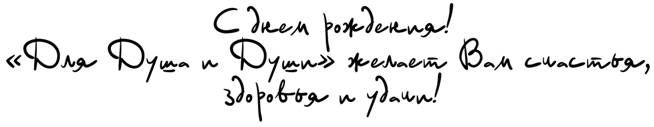 С днем рождения!
«Для Душа и Души» желает Вам счастья,
здоровья и удачи!